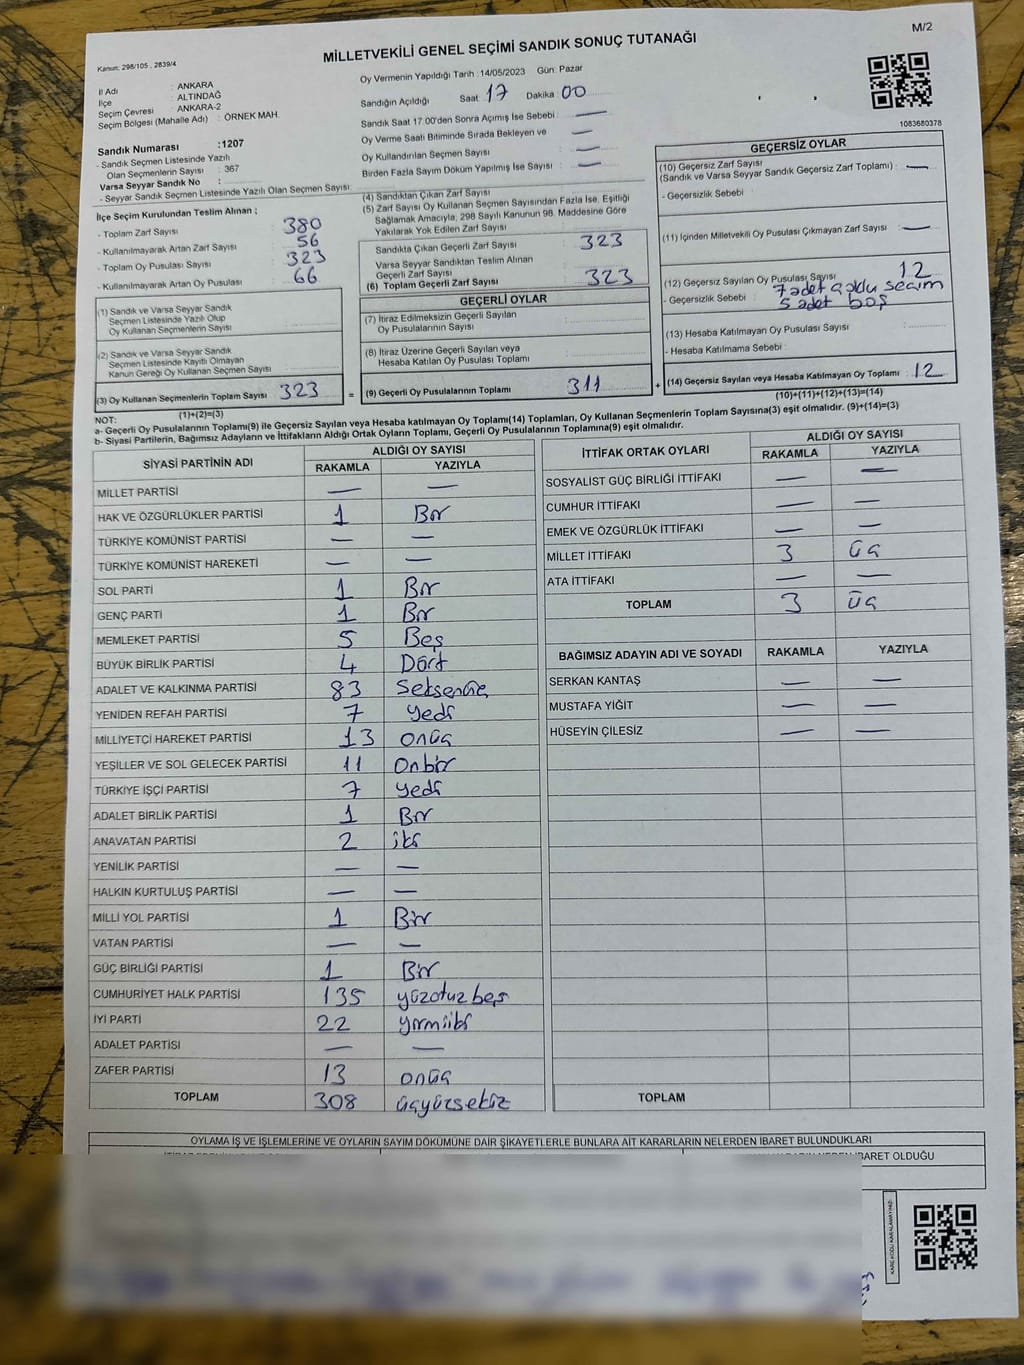 M/2
MİLLETVEKİLİ GENEL SEÇİMİ SANDIK SONUÇ TUTANAĞI
Kanun: 298/105 , 2839/4
Oy Vermenin Yapıldığı Tarih : 14/05/2023 Gün: Pazar
İl Adı : ANKARA
İlçe : ALTINDAĞ
Seçim Çevresi : ANKARA-2
Seçim Bölgesi (Mahalle Adı) : ÖRNEK MAH.
Sandık Numarası : 1207
- Sandık Seçmen Listesinde Yazılı
Olan Seçmenlerin Sayısı : 367
Varsa Seyyar Sandık No :
- Seyyar Sandık Seçmen Listesinde Yazılı Olan Seçmen Sayısı:
Sandığın Açıldığı Saat 17 Dakika 00
Sandık Saat 17.00'den Sonra Açımış İse Sebebi : —
Oy Verme Saati Bitiminde Sırada Bekleyen ve —
Oy Kullandırılan Seçmen Sayısı : —
Birden Fazla Sayım Döküm Yapılmış İse Sayısı : —
1083680378
İlçe Seçim Kurulundan Teslim Alınan ;
- Toplam Zarf Sayısı : 380
- Kullanılmayarak Artan Zarf Sayısı : 56
- Toplam Oy Pusulası Sayısı : 323
- Kullanılmayarak Artan Oy Pusulası : 66
(1) Sandık ve Varsa Seyyar Sandık
Seçmen Listesinde Yazılı Olup
Oy Kullanan Seçmenlerin Sayısı :
(2) Sandık ve Varsa Seyyar Sandık
Seçmen Listesinde Kayıtlı Olmayan
Kanun Gereği Oy Kullanan Seçmen Sayısı :
(3) Oy Kullanan Seçmenlerin Toplam Sayısı : 323
(1)+(2)=(3)
(4) Sandıktan Çıkan Zarf Sayısı :
(5) Zarf Sayısı Oy Kullanan Seçmen Sayısından Fazla İse, Eşitliği
Sağlamak Amacıyla, 298 Sayılı Kanunun 98. Maddesine Göre
Yakılarak Yok Edilen Zarf Sayısı :
Sandıkta Çıkan Geçerli Zarf Sayısı : 323
Varsa Seyyar Sandıktan Teslim Alınan
Geçerli Zarf Sayısı :
(6) Toplam Geçerli Zarf Sayısı : 323
GEÇERLİ OYLAR
(7) İtiraz Edilmeksizin Geçerli Sayılan
Oy Pusulalarının Sayısı :
(8) İtiraz Üzerine Geçerli Sayılan veya
Hesaba Katılan Oy Pusulası Toplamı :
= (9) Geçerli Oy Pusulalarının Toplamı : 311
GEÇERSİZ OYLAR
(10) Geçersiz Zarf Sayısı
(Sandık ve Varsa Seyyar Sandık Geçersiz Zarf Toplamı) : —
- Geçersizlik Sebebi :
(11) İçinden Milletvekili Oy Pusulası Çıkmayan Zarf Sayısı : —
(12) Geçersiz Sayılan Oy Pusulası Sayısı : 12
- Geçersizlik Sebebi : 7 adet çoklu seçim
5 adet boş
(13) Hesaba Katılmayan Oy Pusulası Sayısı :
- Hesaba Katılmama Sebebi :
+ (14) Geçersiz Sayılan veya Hesaba Katılmayan Oy Toplamı : 12
(10)+(11)+(12)+(13)=(14)
NOT:
a- Geçerli Oy Pusulalarının Toplamı(9) ile Geçersiz Sayılan veya Hesaba katılmayan Oy Toplamı(14) Toplamları, Oy Kullanan Seçmenlerin Toplam Sayısına(3) eşit olmalıdır. (9)+(14)=(3)
b- Siyasi Partilerin, Bağımsız Adayların ve İttifakların Aldığı Ortak Oyların Toplamı, Geçerli Oy Pusulalarının Toplamına(9) eşit olmalıdır.
SİYASİ PARTİNİN ADI ALDIĞI OY SAYISI
RAKAMLA YAZIYLA
MİLLET PARTİSİ — —
HAK VE ÖZGÜRLÜKLER PARTİSİ 1 Bir
TÜRKİYE KOMÜNİST PARTİSİ — —
TÜRKİYE KOMÜNİST HAREKETİ — —
SOL PARTİ 1 Bir
GENÇ PARTİ 1 Bir
MEMLEKET PARTİSİ 5 Beş
BÜYÜK BİRLİK PARTİSİ 4 Dört
ADALET VE KALKINMA PARTİSİ 83 Seksenüç
YENİDEN REFAH PARTİSİ 7 yedi
MİLLİYETÇİ HAREKET PARTİSİ 13 onüç
YEŞİLLER VE SOL GELECEK PARTİSİ 11 Onbir
TÜRKİYE İŞÇİ PARTİSİ 7 yedi
ADALET BİRLİK PARTİSİ 1 Bir
ANAVATAN PARTİSİ 2 iki
YENİLİK PARTİSİ — —
HALKIN KURTULUŞ PARTİSİ — —
MİLLİ YOL PARTİSİ 1 Bir
VATAN PARTİSİ — —
GÜÇ BİRLİĞİ PARTİSİ 1 Bir
CUMHURİYET HALK PARTİSİ 135 yüzotuz beş
İYİ PARTİ 22 yirmiiki
ADALET PARTİSİ — —
ZAFER PARTİSİ 13 onüç
TOPLAM 308 üçyüzsekiz
İTTİFAK ORTAK OYLARI ALDIĞI OY SAYISI
RAKAMLA YAZIYLA
SOSYALİST GÜÇ BİRLİĞİ İTTİFAKI — —
CUMHUR İTTİFAKI — —
EMEK VE ÖZGÜRLÜK İTTİFAKI — —
MİLLET İTTİFAKI 3 üç
ATA İTTİFAKI — —
TOPLAM 3 üç
BAĞIMSIZ ADAYIN ADI VE SOYADI RAKAMLA YAZIYLA
SERKAN KANTAŞ — —
MUSTAFA YİĞİT — —
HÜSEYİN ÇİLESİZ — —
TOPLAM
OYLAMA İŞ VE İŞLEMLERİNE VE OYLARIN SAYIM DÖKÜMÜNE DAİR ŞİKAYETLERLE BUNLARA AİT KARARLARIN NELERDEN İBARET BULUNDUKLARI
İBARET OLDUĞU
KARE KODU KARALAMAYINIZ!